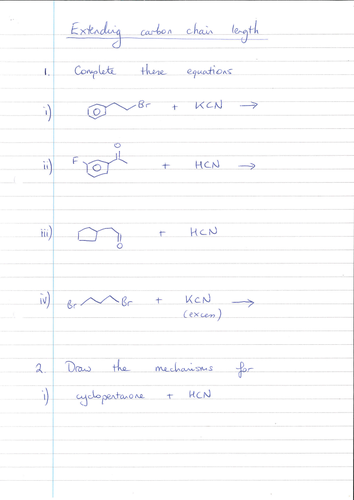 Extending carbon chain length
1. Complete these equations
i) Br + KCN →
ii) F O + HCN →
iii) O + HCN
iv) Br Br + KCN →
(excess)
2. Draw the mechanisms for
i) cyclopentanone + HCN